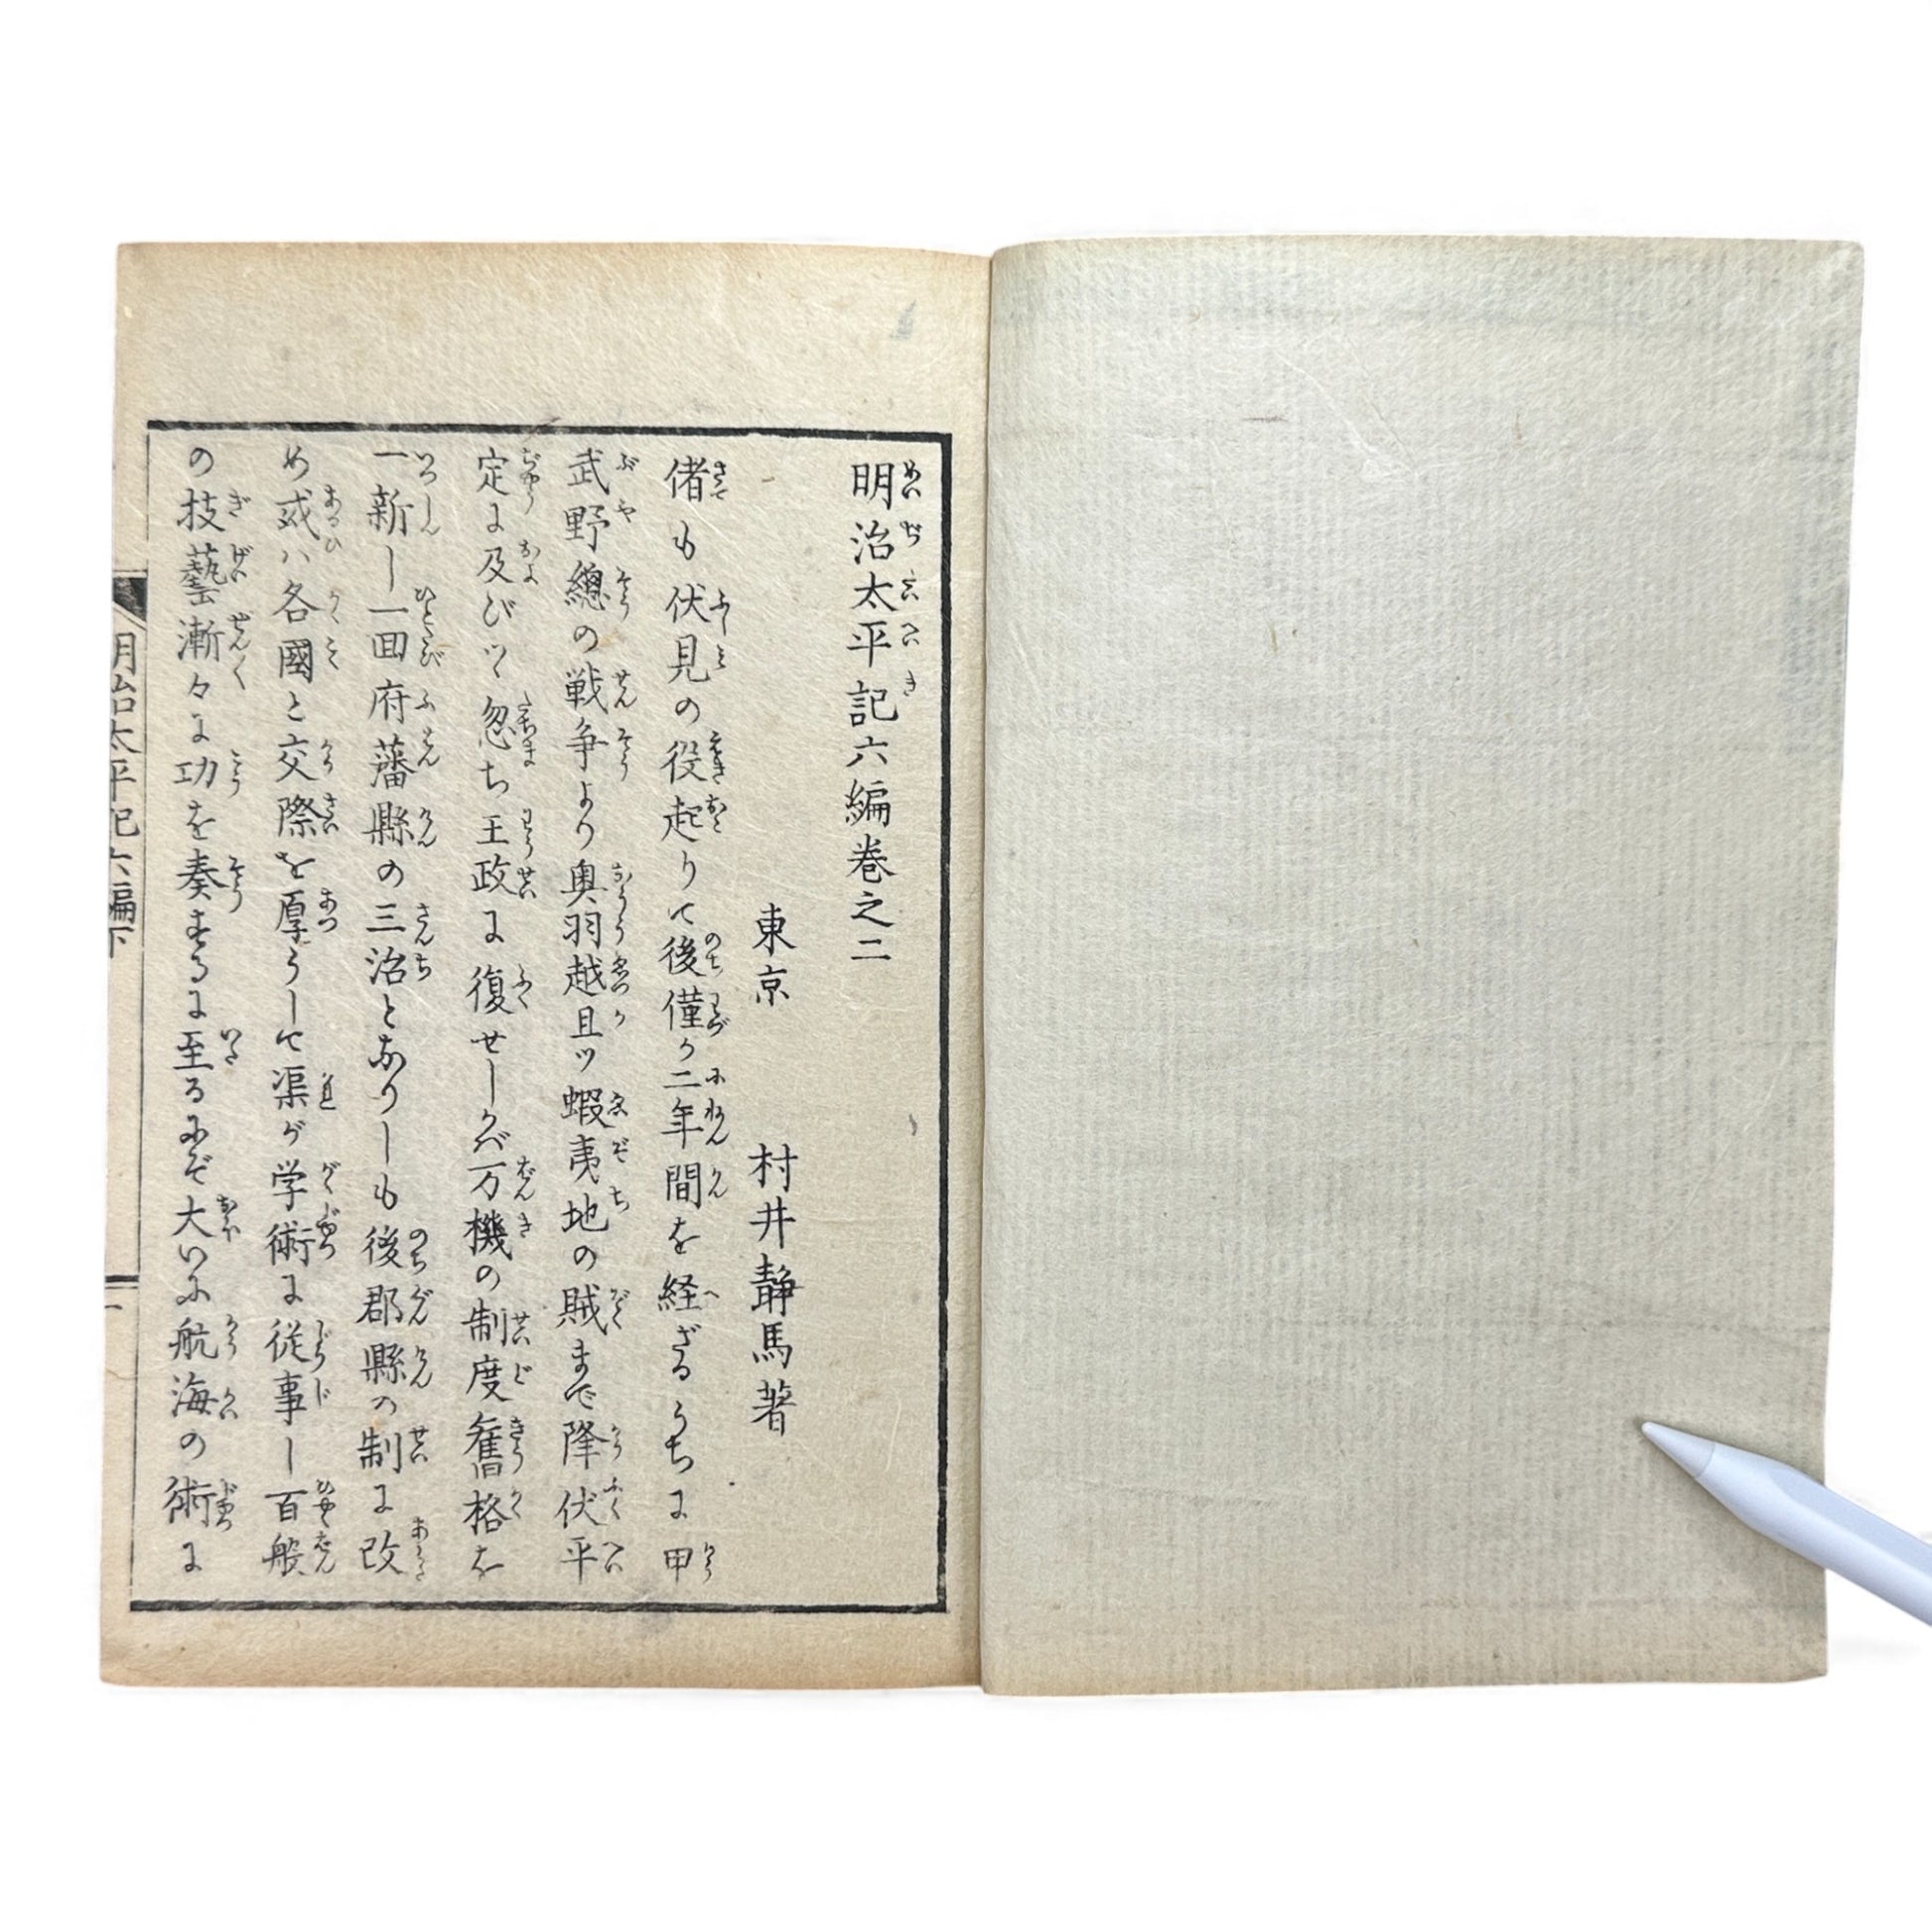 明治太平記六編巻之二
東京 村井静馬著
偖も伏見の役起りて後僅か二年間を経ざるうちに甲
武野總の戦争より奥羽越且ツ蝦夷地の賊まで降伏平
定に及びツヽ忽ち王政に復せしかバ万機の制度舊格を
一新し一回府藩縣の三治となりしも後郡縣の制に改
め或ハ各國と交際を厚うして渠が学術に従事し百般
の技藝漸々に功を奏するに至るにぞ大いに航海の術に
明治太平記六編下
一